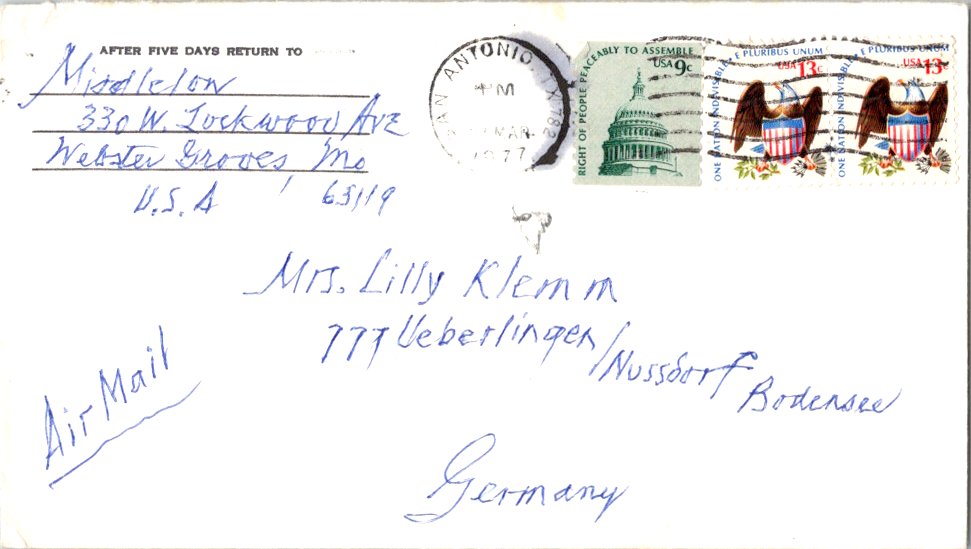 AFTER FIVE DAYS RETURN TO
Middleton
330 W. Lockwood Ave
Webster Groves, Mo
U.S.A 63119
SAN ANTONIO, TX 782
PM
MAR
1977
RIGHT OF PEOPLE PEACEABLY TO ASSEMBLE
USA 9c
ONE NATION INDIVISIBLE
E PLURIBUS UNUM
USA 13c
ONE NATION INDIVISIBLE
E PLURIBUS UNUM
USA 13c
Mrs. Lilly Klemm
777 Ueberlingen/Nussdorf
Bodensee
Air Mail
Germany